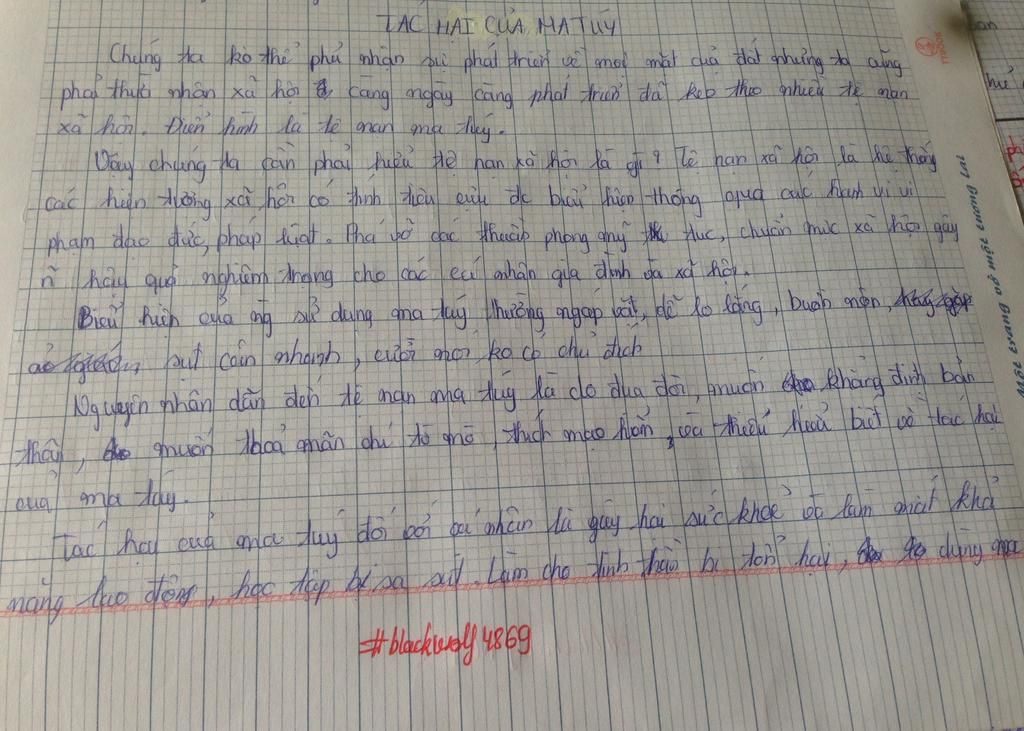 TÁC HẠI CỦA MA TÚY
Chúng ta ko thể phủ nhận sự phát triển về mọi mặt của đất nhưng ta cũng
phải thừa nhận xã hội càng ngày càng phát triển đã kéo theo nhiều tệ nạn
xã hội. Điển hình là tệ nạn ma túy.
Vậy chúng ta cần phải hiểu tệ nạn xã hội là gì? Tệ nạn xã hội là hệ thống
các hiện tượng xã hội có tính tiêu cực đc biểu hiện thông qua các hành vi vi
phạm đạo đức, pháp luật. Phá vỡ các thuần phong mỹ tục, chuẩn mực xã hội gây
hậy quả nghiêm trọng cho các cá nhân gia đình và xã hội.
Biểu hiện của ng sử dụng ma túy thường ngáp vặt, dễ lo lắng, buồn nôn,
sụt cân nhanh, cười nói ko có chủ đích
Nguyên nhân dẫn đến tệ nạn ma túy là do đua đòi, muốn khẳng định bản
thân, muốn thoả mãn chí tò mò, thích mạo hiểm, và thiếu hiểu biết về tác hại
của ma túy.
Tác hại của ma túy đối với cá nhân là gây hại sức khoẻ và làm mất khả
năng lao động, học tập bị sa sút. Làm cho tinh thần bị tổn hại, dùng ma
#blackwolf4869